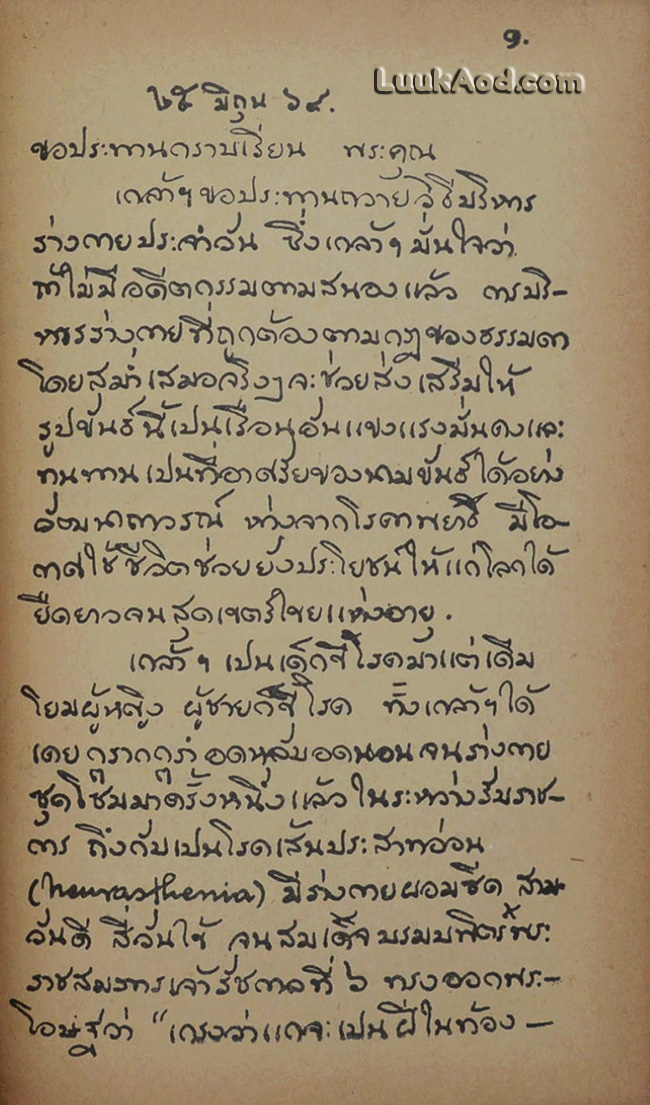 ๑.
LuukAod.com
๒๕ มิถุน ๖๙.
ขอประทานกราบเรียน พระคุณ
เกล้าฯขอประทานถวายวิธีบริหาร
ร่างกายประจำวัน ซึ่งเกล้าฯมั่นใจว่า
ถ้าไม่มีอดีตกรรมตามสนองแล้ว การบริ-
หารร่างกายที่ถูกต้องตามกฎของธรรมดา
โดยสม่ำเสมอจริงๆจะช่วยส่งเสริมให้
รูปขันธ์นี้เป็นเรือนอันแขงแรงมั่นคงและ
ทนทานเปนที่อาศรัยของนามขันธ์ได้อย่าง
วัฒนาถาวรณ์ ห่างจากโรคาพยาธิ มีโอ-
กาศใช้ชีวิตช่วยยังประโยชน์ให้แก่โลกได้
ยืดยาวจนสุดเขตร์ไขยแห่งอายุ.
เกล้าฯ เปนเด็กขี้โรคมาแต่เดิม
โยมผู้หญิง ผู้ชายก็ขี้โรค ทั้งเกล้าฯได้
เคยกรากกรำอดหลับอดนอนจนร่างกาย
ซุดโซมมาครั้งหนึ่งแล้วในระหว่างรับราช-
การ ถึงกับเปนโรคเส้นประสาทอ่อน
(neurasthenia) มีร่างกายผอมซีด สาม
วันดี สี่วันไข้ จนสมเด็จบรมบพิตร์พระ
ราชสมภารเจ้ารัชกาลที่ ๖ ทรงออกพระ-
โอษฐ์ว่า "เกรงว่าแกจะเปนฝีในท้อง-